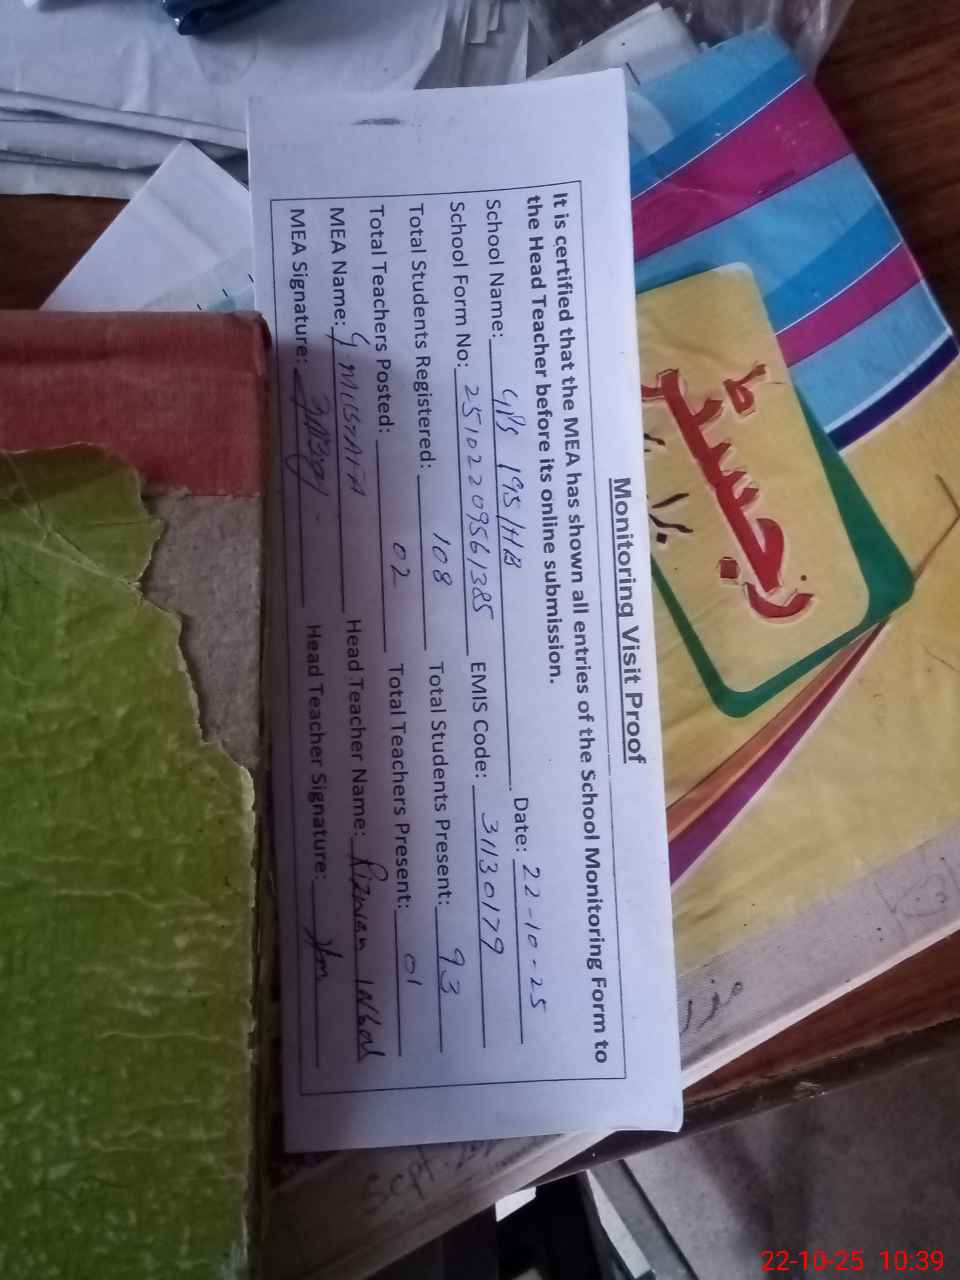 Monitoring Visit Proof
It is certified that the MEA has shown all entries of the School Monitoring Form to
the Head Teacher before its online submission.
Date: 22-10-25
School Name: GPS 195/HB
School Form No: 2510220956 1385 EMIS Code: 31130179
Total Students Registered: 108 Total Students Present: 93
Total Teachers Posted: 02 Total Teachers Present: 01
MEA Name: G MUSTAFA Head Teacher Name: Rizwan Iqbal
MEA Signature: Head Teacher Signature:
رجسٹر
Sept.
22-10-25 10:39